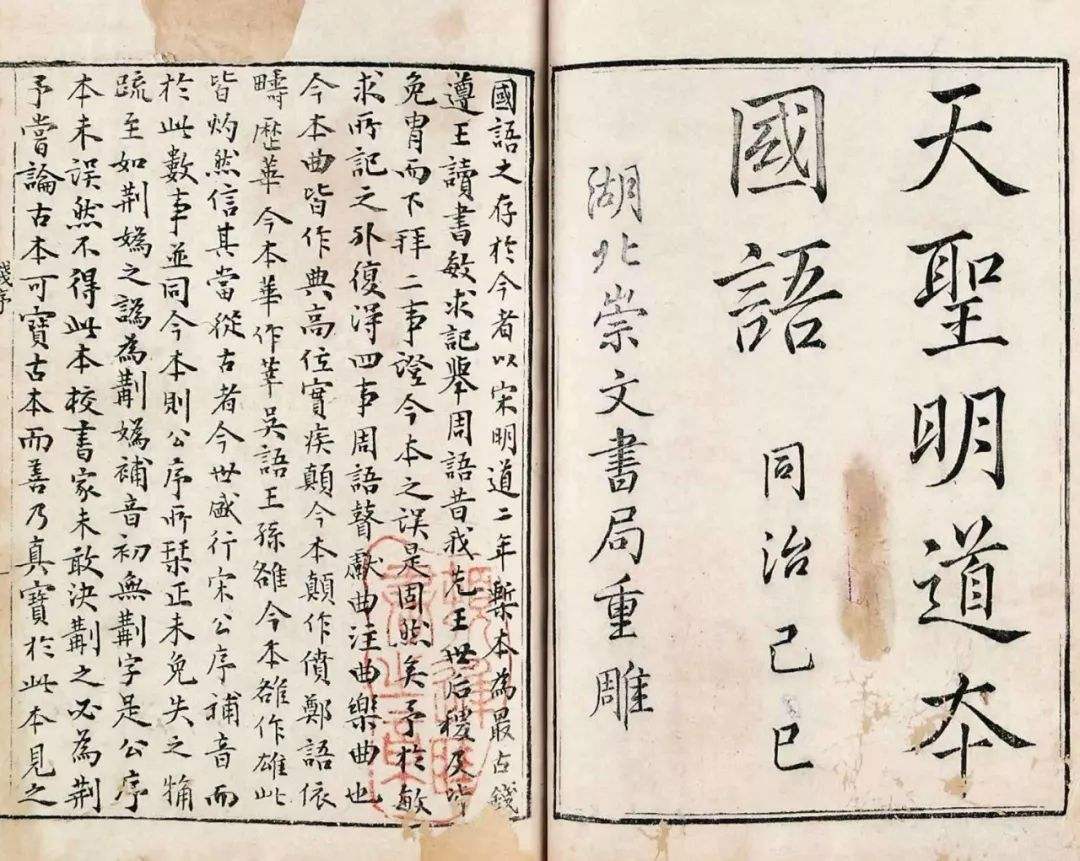 天聖明道本
國語 同治己巳
湖北崇文書局重雕
國語之存於今者以宋明道二年槧本為最古錢
遵王讀書敏求記舉周語昔我先王世后稷及皆
免冑而下拜二事證今本之误是固然矣予於敏
求所記之外復得四事周語瞽獻曲注曲樂曲也
今本曲皆作典高位實疾顛今本顛作僨鄭語依
疇歷華今本華作莘吳語王孫雒今本雒作雄此
皆灼然信其當從古者今世盛行宋公序補音而
於此數事並同今本則公序所栞正未免失之觕
疏至如荆嬀之譌為荊嬀補音初無荊字是公序
本未误然不得此本校書家未敢決荊之必為荆
予嘗論古本可寶古本而善乃真寶於此本見之
錢序
一